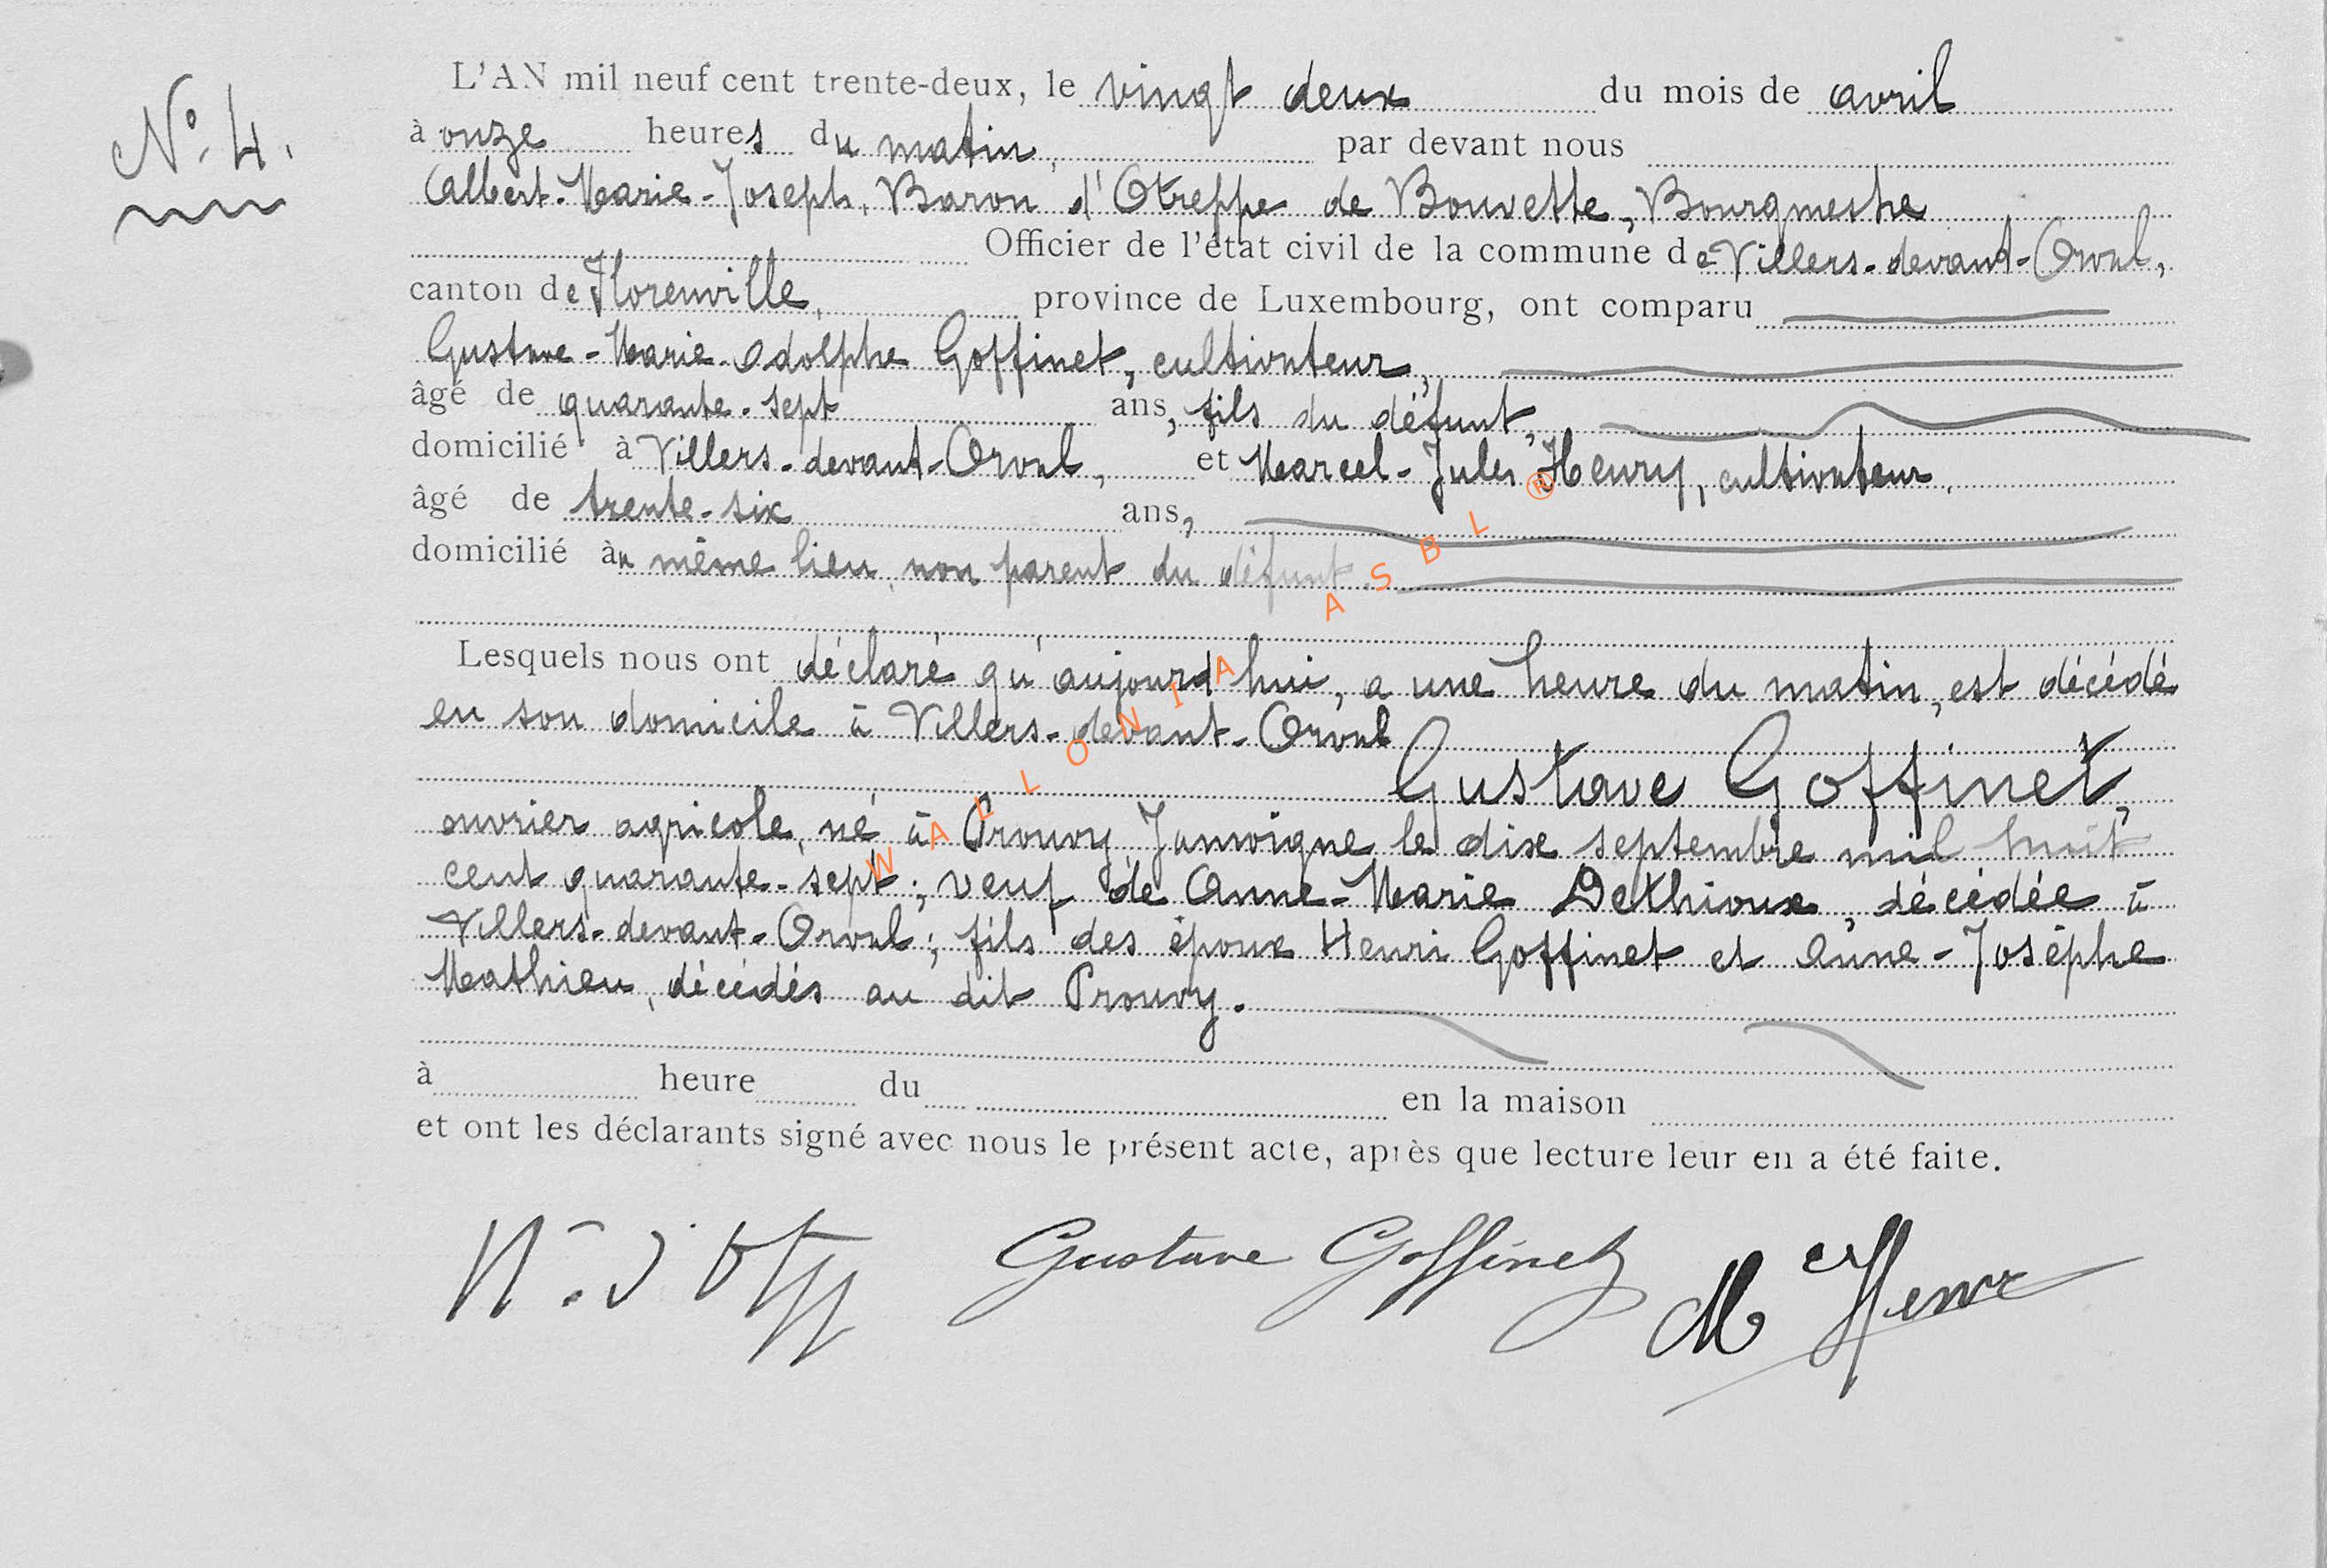 N° 4.
L'AN mil neuf cent trente-deux, le vingt deux du mois de avril
à onze heures du matin, par devant nous
Albert-Marie-Joseph, Baron d'Otreppe de Bouvette, Bourgmestre
Officier de l'état civil de la commune de Villers-devant-Orval,
canton de Florenville, province de Luxembourg, ont comparu
Gustave-Marie-Adolphe Goffinet, cultivateur,
âgé de quarante-sept ans, fils du défunt,
domicilié à Villers-devant-Orval, et Marcel-Jules Henry, cultivateur,
âgé de trente-six ans,
domicilié au même lieu, non parent du défunt
Lesquels nous ont déclaré qu'aujourd'hui, a une heure du matin, est décédé
en son domicile à Villers-devant-Orval
Gustave Goffinet,
ouvrier agricole, né à Prouvy Jamoigne le dix septembre mil huit
cent quarante-sept; veuf de Anne-Marie Dethioux, décédée à
Villers-devant-Orval; fils des époux Henri Goffinet et Anne-Josèphe
Mathieu, décédés au dit Prouvy.
à heure du en la maison
et ont les déclarants signé avec nous le présent acte, après que lecture leur en a été faite.
Gustave Goffinet M Henry
WALLONIA ASBL ®